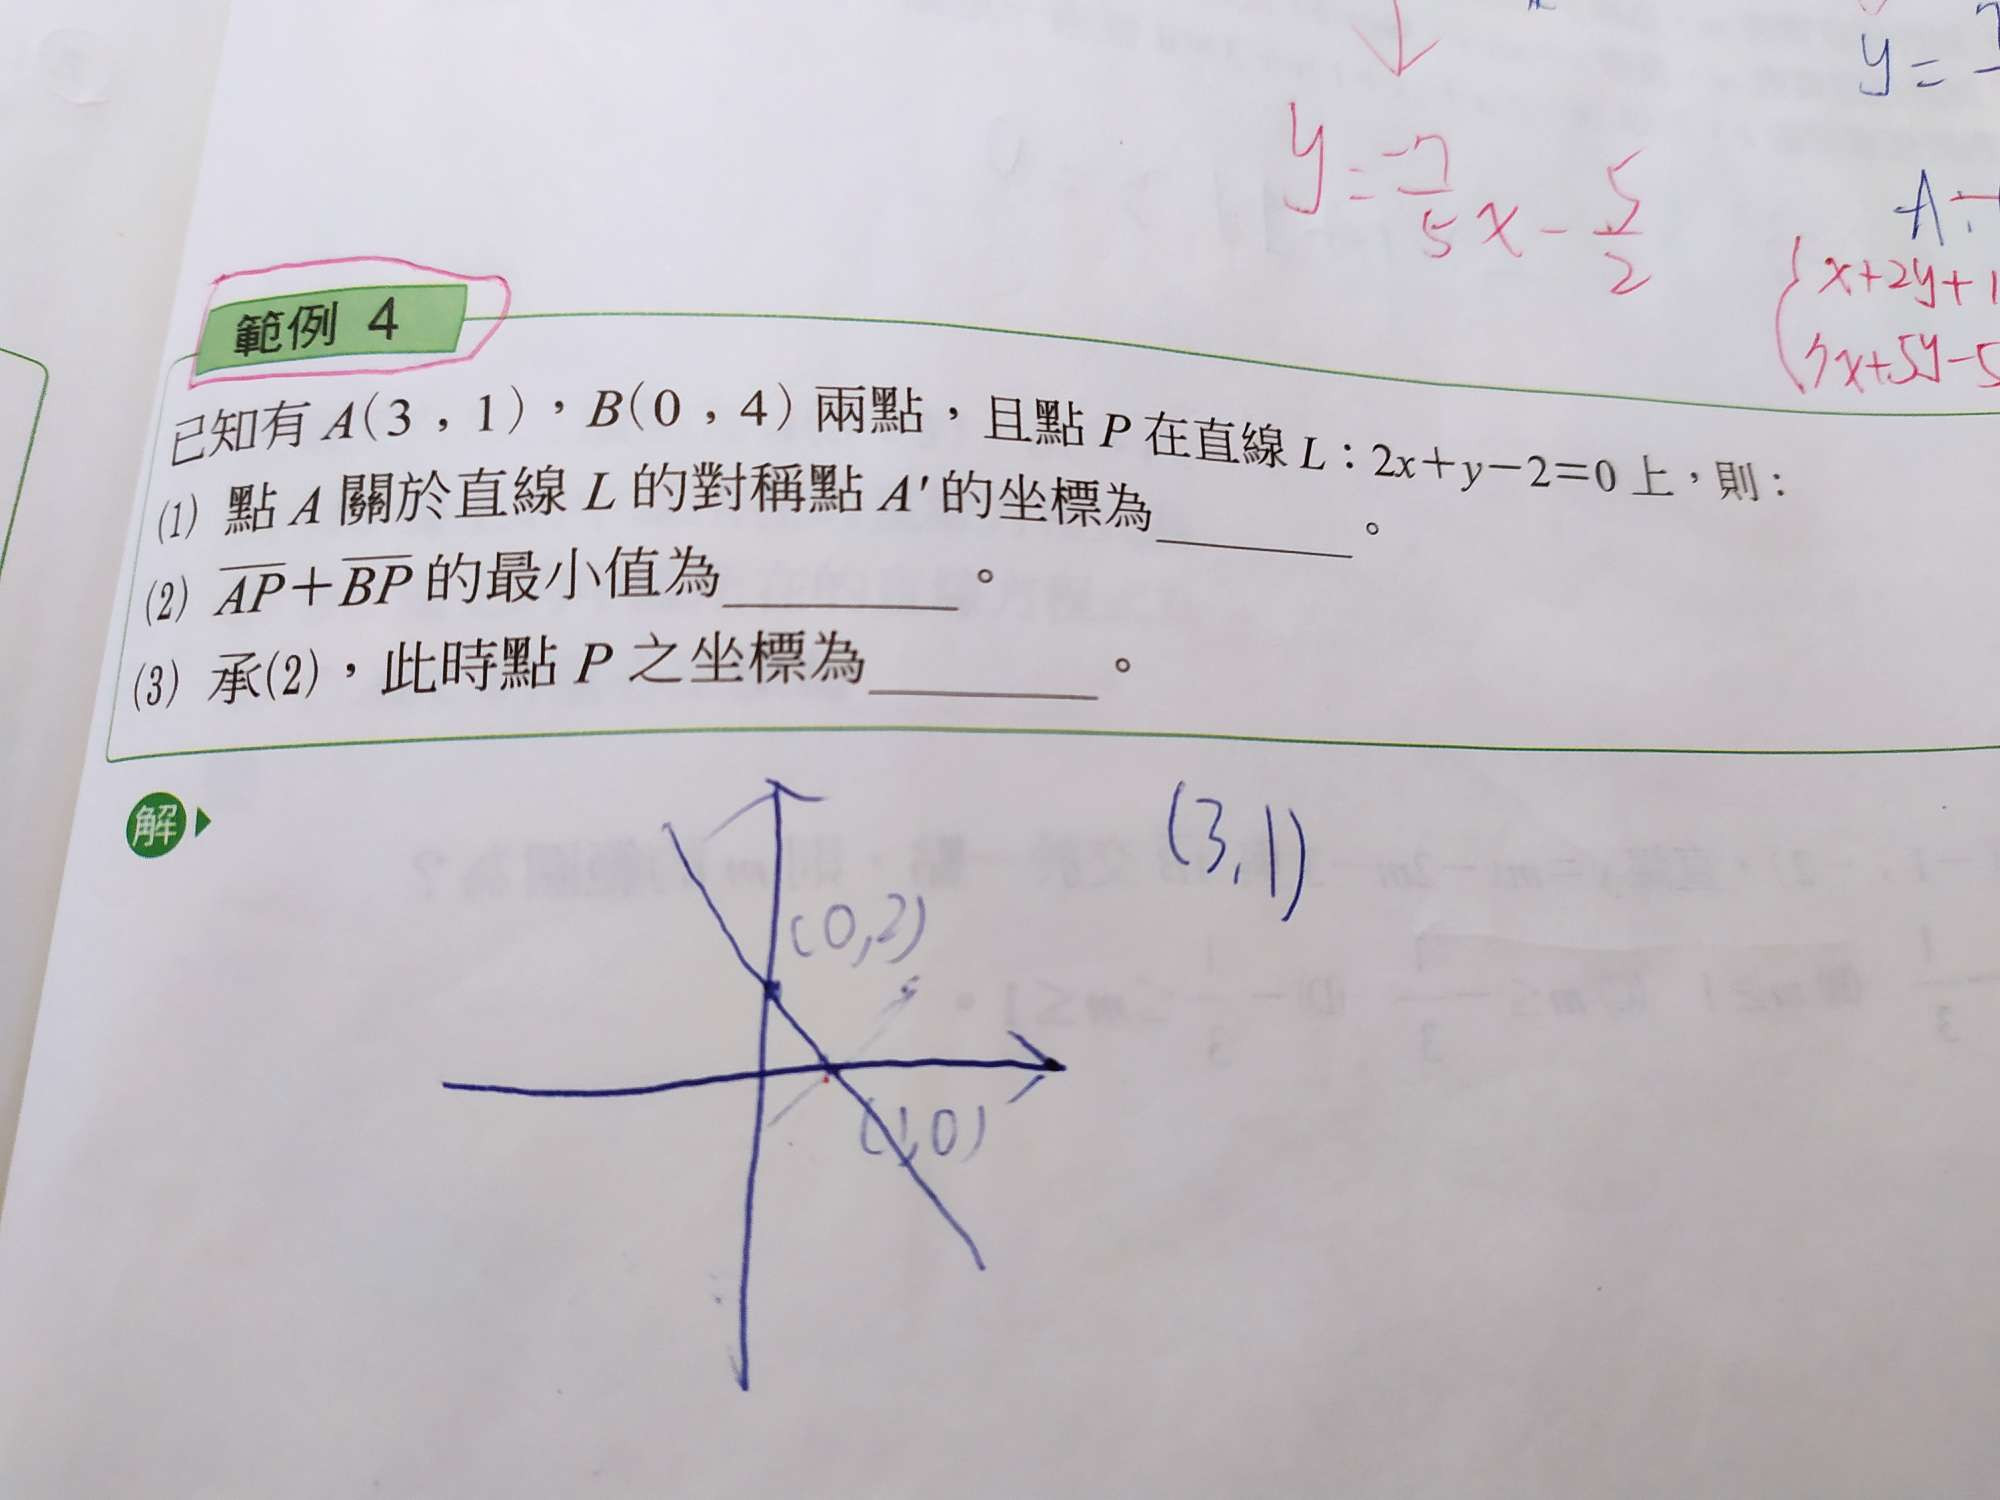 y=
y=-7/5x-5/2
A:
x+2y+1
7x+5y-5
範例 4
已知有 A(3,1),B(0,4) 兩點,且點 P 在直線 L:2x+y-2=0 上,則:
(1) 點 A 關於直線 L 的對稱點 A′ 的坐標為________。
(2) AP+BP 的最小值為________。
(3) 承(2),此時點 P 之坐標為________。
解
(3,1)
(0,2)
(1,0)